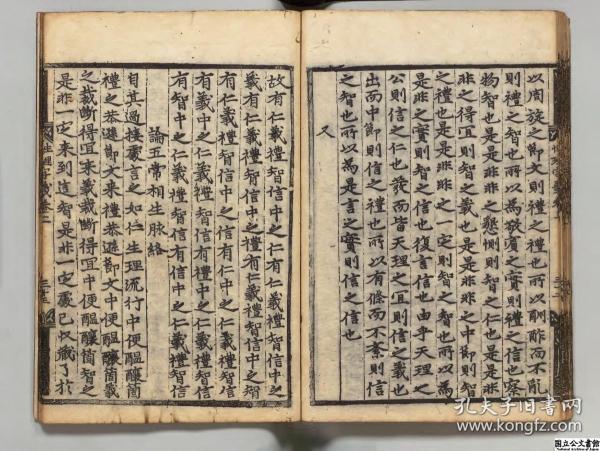 以周旋之節文則禮之禮也所以酬酢而不亂
則禮之智也所以為敬賓之實則禮之信也察
物智也是是非非之懇惻則智之仁也是是非
非之得宜則智之義也是是非非之中節則智
之禮也是是非非之一定則智之智也所以為
是非之實則智之信也復言信也由乎天理之
公則信之仁也發而皆天理之宜則信之義也
出而中節則信之禮也所以有條而不紊則信
之智也所以為是言之實則信之信也
又
故有仁義禮智信中之仁有仁義禮智信中之
義有仁義禮智信中之禮有仁義禮智信中之智
有仁義禮智信中之信有仁中之仁義禮智信
有義中之仁義禮智信有禮中之仁義禮智信
有智中之仁義禮智信有信中之仁義禮智信
論五常相生脉絡
自其過接處言之如仁生理流行中便醖釀箇
禮之恭遜節文來禮恭遜節文中便醖釀箇義
之裁斷得宜來義裁斷得宜中便醖釀箇智之
是非一定來到這智是非一定處已收藏了於
孔夫子旧书网
www.kongfz.com
国立公文書館
National Archives of Japan